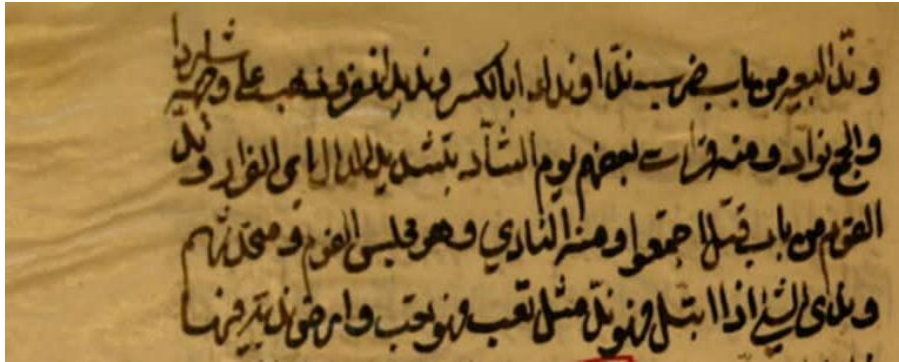 وندّ البعير من باب ضرب ندّا وندادا بالكسر ونديدا نفر وذهب على وجهه شاردا
والجمع نوادّ ومنه قراءت بعضهم يوم التنادّ بتشديد الدال اي الفرار وندا
القوم من باب قتل اجتمعوا ومنه النادي وهو مجلس القوم ومتحدثهم
وندى الشيئ اذا ابتل فهو ندّ مثل تعب فهو تعب وارض ندية فيها